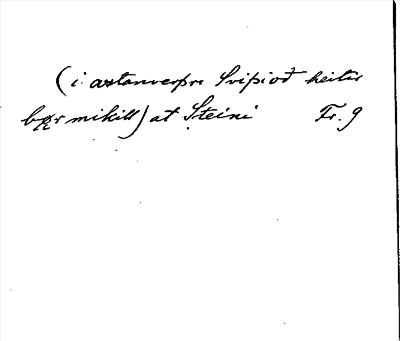 (i austanverþri Sviþioð heiter
bǿr mikill) at Steini Fr. 9